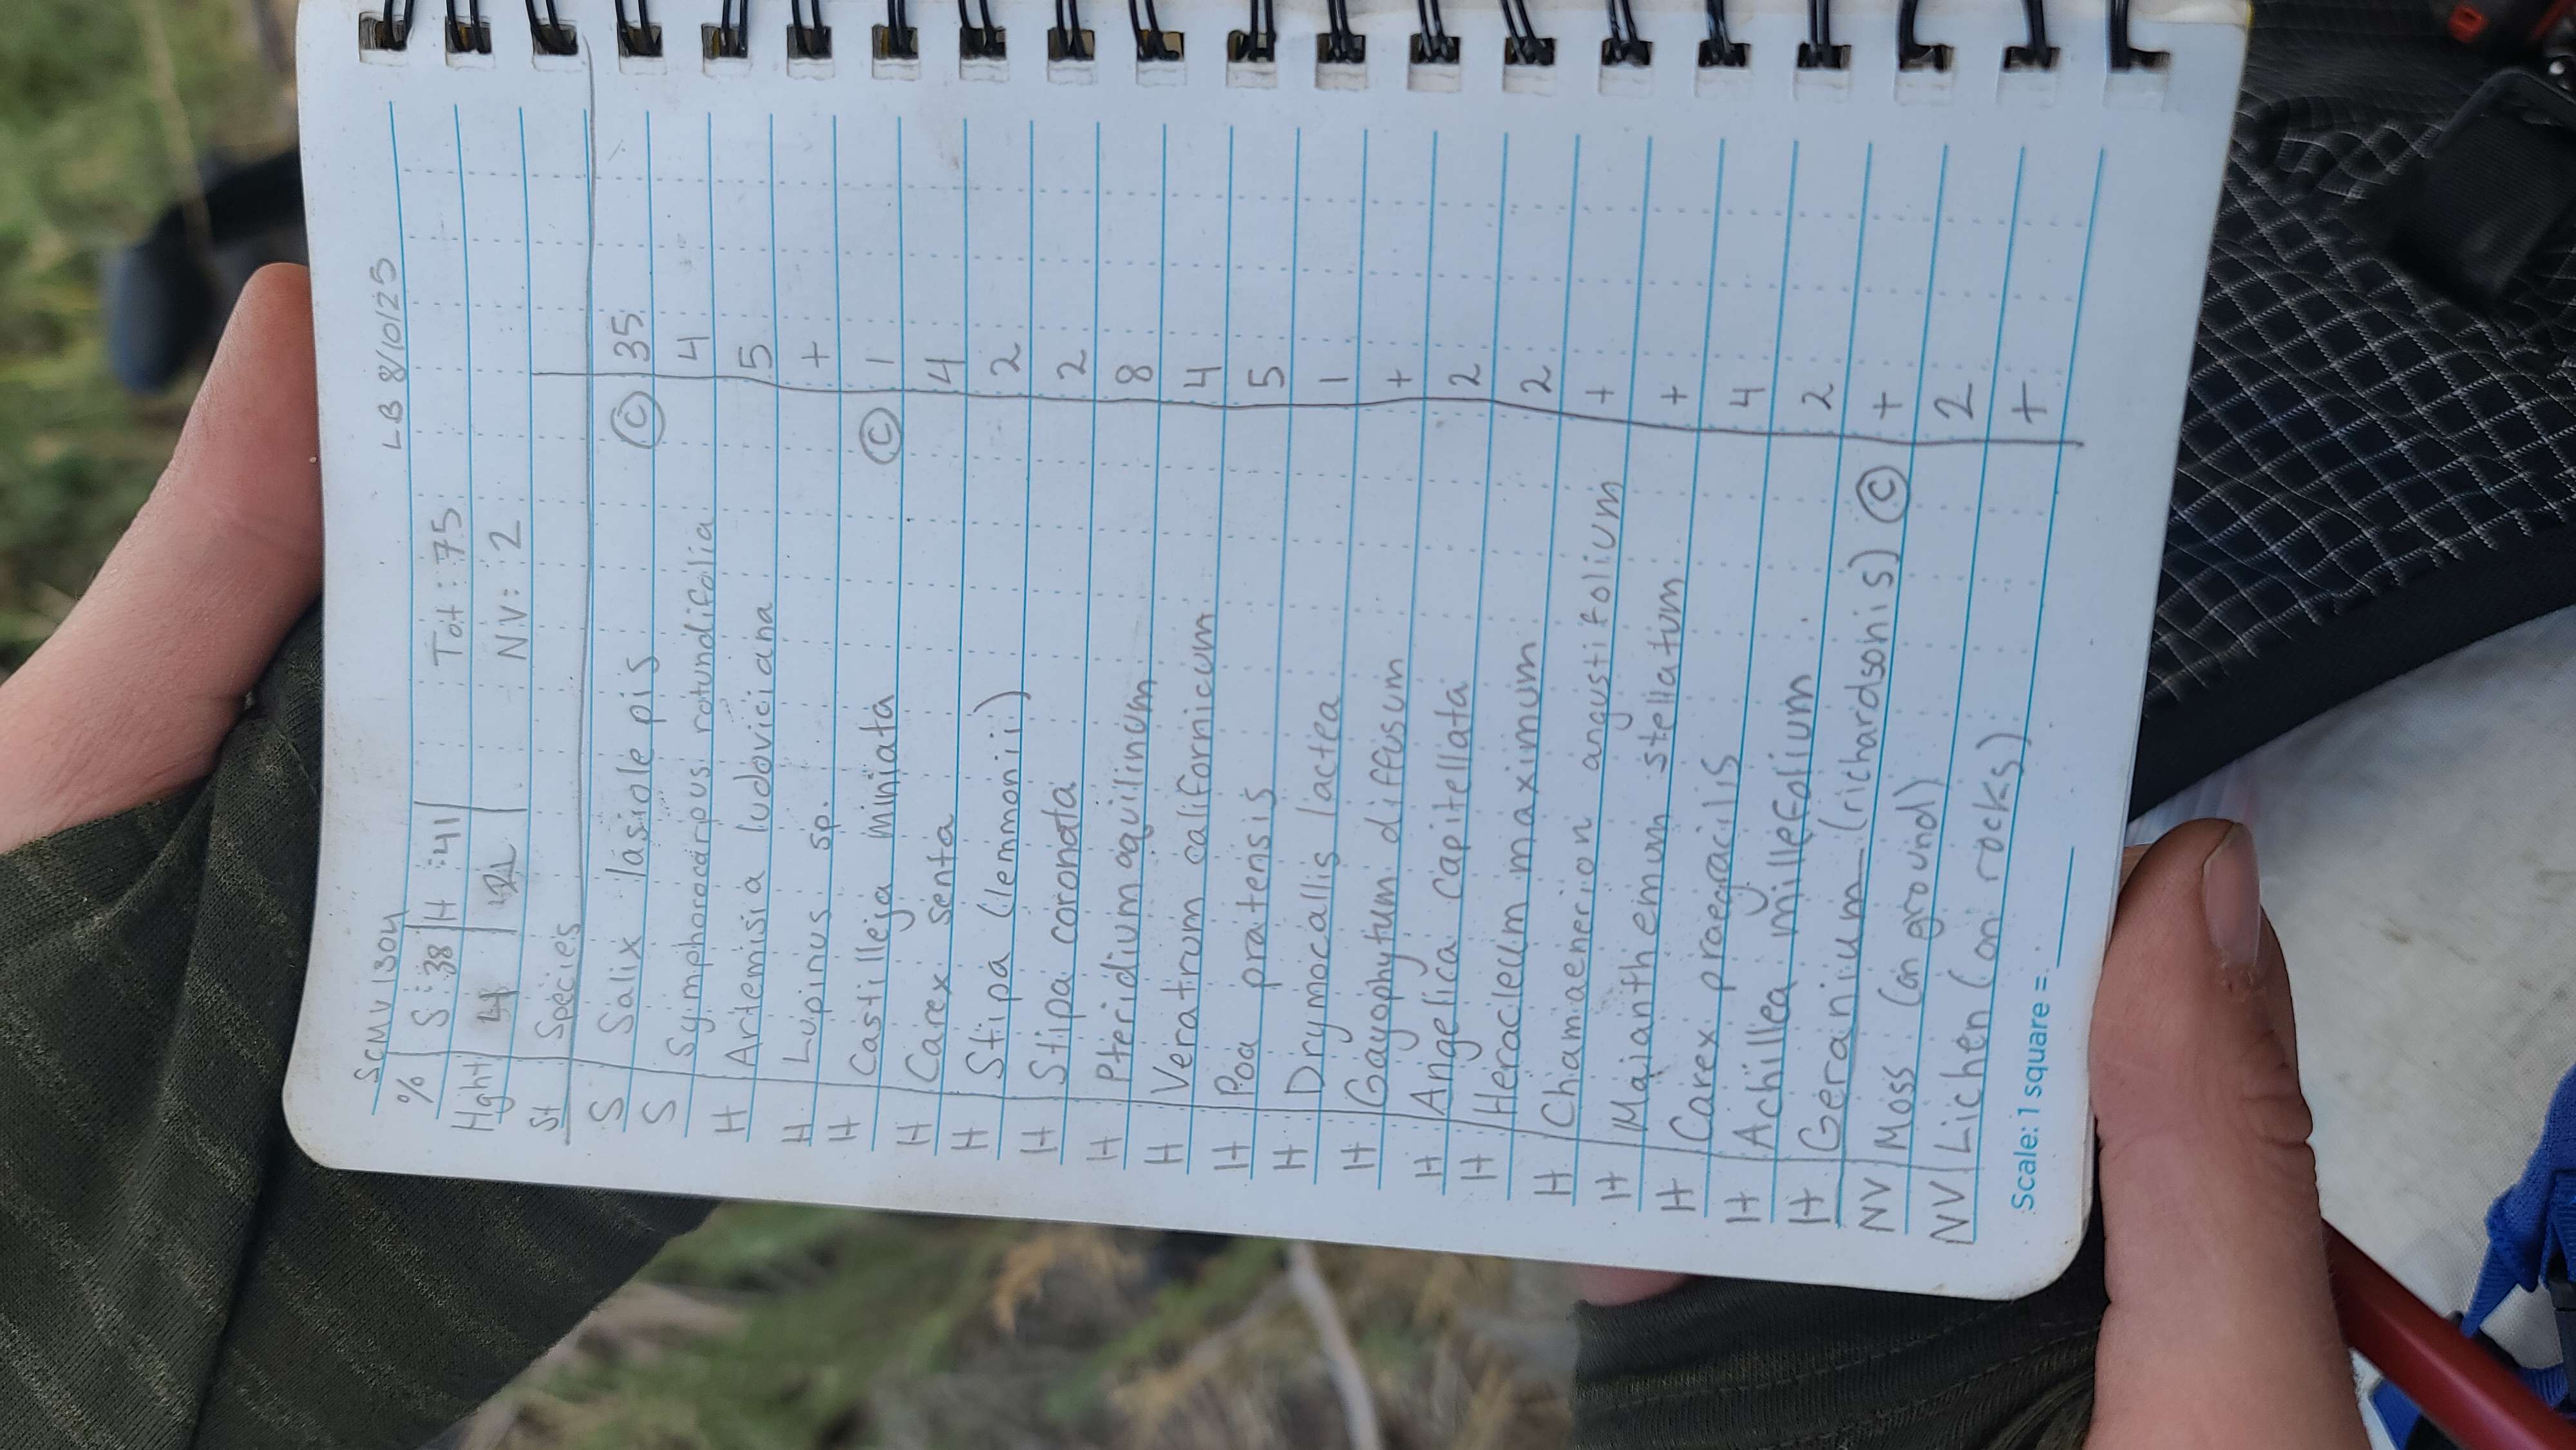 SCMV1304 LB 8/10/25
% S: 38 H: 41 Tot: 75
Hght 4 2 NV: 2
St Species
S Salix lasiolepis C 35
S Symphorocarpus rotundifolia 4
H Artemisia ludoviciana 5
H Lupinus sp. +
H Castilleja miniata C 1
H Carex senta 4
H Stipa (lemmonii) 2
H Stipa coronata 2
H Pteridium aquilinum 8
H Veratrum californicum 4
H Poa pratensis 5
H Drymocallis lactea 1
H Gayophytum diffusum +
H Angelica capitellata 2
H Heracleum maximum 2
H Chamaenerion angustifolium +
H Maianthemum stellatum +
H Carex praegracilis 4
H Achillea millefolium 2
H Geranium (richardsonis) C +
NV Moss (on ground) 2
NV Lichen (on rocks) +
Scale: 1 square =